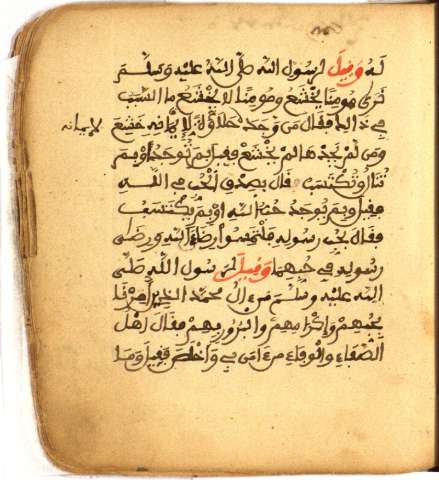 له وقيل لرسول الله صلى الله عليه وسلم
نرى مومنا يخشع ومومنا لا يخشع ما السبب
في ذالك فقال من وجد حلاوة لإيمانه خشع
لإيمانه
ومن لم يجدها لم يخشع فقيل بم توجد أو بم
تنال وتكتسب قال بصدق الحب في الله
فقيل وبم يوجد حب الله أو بم يكتسب
فقال بحب رسوله فالتمسوا رضاء الله ورضى
رسوله في حبهما وقيل لرسول الله صلى
الله عليه وسلم من ءال محمد الذين أمرنا
بحبهم وإكرامهم والبرور بهم فقال أهل
الصفاء والوفاء من ءامن بي وأخلص فقيل وما